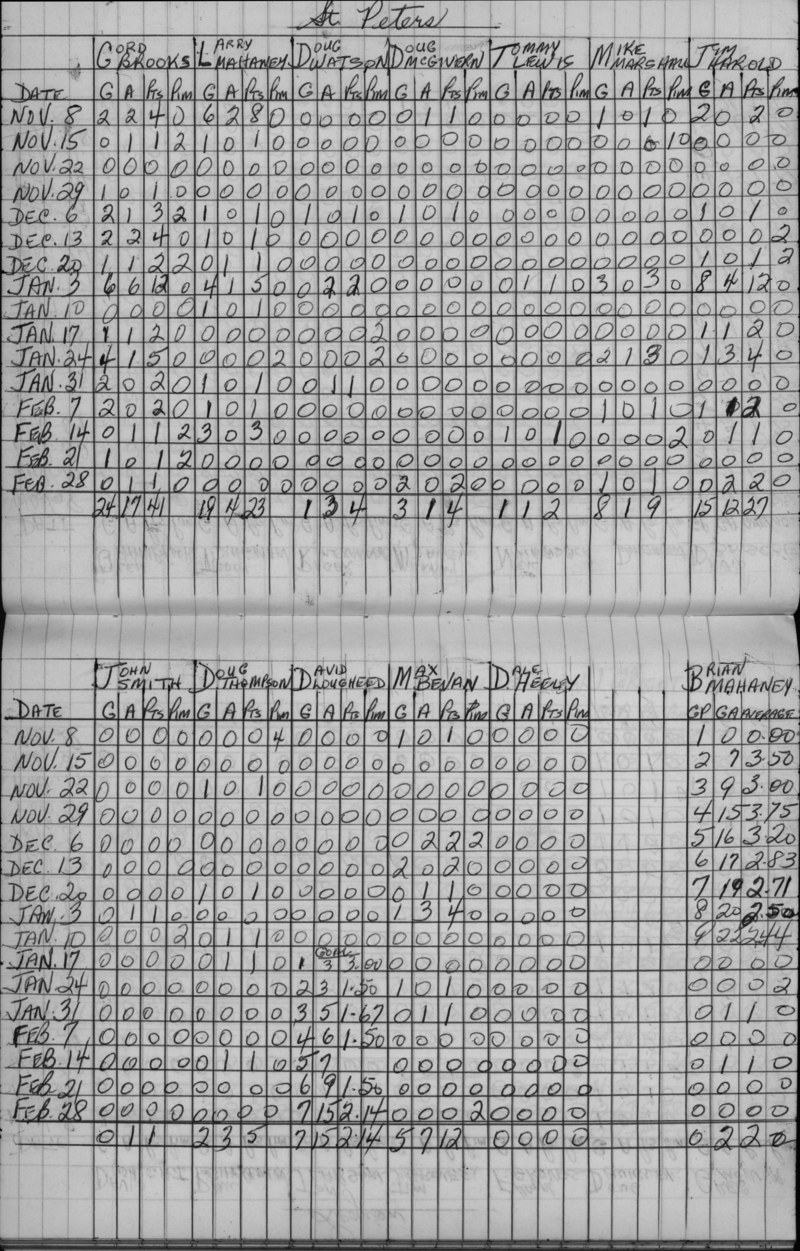 St. Peters
GORD BROOKS LARRY MAHANEY DOUG WATSON DOUG MCGIVERN TOMMY LEWIS MIKE MARSHALL TIM HAROLD
DATE G A Pts Pim G A Pts Pim G A Pts Pim G A Pts Pim G A Pts Pim G A Pts Pim G A Pts Pim
NOV. 8 2 2 4 0 6 2 8 0 0 0 0 0 0 1 1 0 0 0 0 0 1 0 1 0 2 0 2 0
NOV. 15 0 1 1 2 1 0 1 0 0 0 0 0 0 0 0 0 0 0 0 0 0 0 0 10 0 0 0 0
NOV. 22 0 0 0 0 0 0 0 0 0 0 0 0 0 0 0 0 0 0 0 0 0 0 0 0 0 0 0 0
NOV. 29 1 0 1 0 0 0 0 0 0 0 0 0 0 0 0 0 0 0 0 0 0 0 0 0 0 0 0 0
DEC. 6 2 1 3 2 1 0 1 0 1 0 1 0 1 0 1 0 0 0 0 0 0 0 0 0 1 0 1 0
DEC. 13 2 2 4 0 1 0 1 0 0 0 0 0 0 0 0 0 0 0 0 0 0 0 0 0 0 0 0 2
DEC. 20 1 1 2 2 0 1 1 0 0 0 0 0 0 0 0 0 0 0 0 0 0 0 0 0 1 0 1 2
JAN. 3 6 6 12 0 4 1 5 0 0 2 2 0 0 0 0 0 0 1 1 0 3 0 3 0 8 4 12 0
JAN. 10 0 0 0 0 1 0 1 0 0 0 0 0 0 0 0 0 0 0 0 0 0 0 0 0 0 0 0 0
JAN. 17 1 1 2 0 0 0 0 0 0 0 0 2 0 0 0 0 0 0 0 0 0 0 0 0 1 1 2 0
JAN. 24 4 1 5 0 0 0 0 2 0 0 0 2 0 0 0 0 0 0 0 0 2 1 3 0 1 3 4 0
JAN. 31 2 0 2 0 1 0 1 0 0 1 1 0 0 0 0 0 0 0 0 0 0 0 0 0 0 0 0 0
FEB. 7 2 0 2 0 1 0 1 0 0 0 0 0 0 0 0 0 0 0 0 0 1 0 1 0 1 1 2 0
FEB. 14 0 1 1 2 3 0 3 0 0 0 0 0 0 0 0 0 1 0 1 0 0 0 0 2 0 1 1 0
FEB. 21 1 0 1 2 0 0 0 0 0 0 0 0 0 0 0 0 0 0 0 0 0 0 0 0 0 0 0 0
FEB. 28 0 1 1 0 0 0 0 0 0 0 0 0 2 0 2 0 0 0 0 0 1 0 1 0 0 2 2 0
24 17 41 19 4 23 1 3 4 3 1 4 1 1 2 8 1 9 15 12 27
JOHN SMITH DOUG THOMPSON DAVID LOUGHEED MAX BEVAN DALE HEELEY BRIAN MAHANEY
DATE G A Pts Pim G A Pts Pim G A Pts Pim G A Pts Pim G A Pts Pim GP GA AVERAGE
NOV. 8 0 0 0 0 0 0 0 4 0 0 0 0 1 0 1 0 0 0 0 0 1 0 0.00
NOV. 15 0 0 0 0 0 0 0 0 0 0 0 0 0 0 0 0 0 0 0 0 2 7 3.50
NOV. 22 0 0 0 0 1 0 1 0 0 0 0 0 0 0 0 0 0 0 0 0 3 9 3.00
NOV. 29 0 0 0 0 0 0 0 0 0 0 0 0 0 0 0 0 0 0 0 0 4 15 3.75
DEC. 6 0 0 0 0 0 0 0 0 0 0 0 0 0 2 2 2 0 0 0 0 5 16 3.20
DEC. 13 0 0 0 0 0 0 0 0 0 0 0 0 2 0 2 0 0 0 0 0 6 17 2.83
DEC. 20 0 0 0 0 1 0 1 0 0 0 0 0 0 1 1 0 0 0 0 0 7 19 2.71
JAN. 3 0 1 1 0 0 0 0 0 0 0 0 0 1 3 4 0 0 0 0 0 8 20 2.50
JAN. 10 0 0 0 2 0 1 1 0 0 0 0 0 0 0 0 0 0 0 0 0 9 22 2.44
JAN. 17 0 0 0 0 0 1 1 0 1 GOAL 3 3.00 0 0 0 0 0 0 0 0 0 0 0 0
JAN. 24 0 0 0 0 0 0 0 0 2 3 1.50 1 0 1 0 0 0 0 0 0 0 0 2
JAN. 31 0 0 0 0 0 0 0 0 3 5 1.67 0 1 1 0 0 0 0 0 0 1 1 0
FEB. 7 0 0 0 0 0 0 0 0 4 6 1.50 0 0 0 0 0 0 0 0 0 0 0 0
FEB. 14 0 0 0 0 0 1 1 0 5 7 0 0 0 0 0 0 0 0 0 1 1 0
FEB. 21 0 0 0 0 0 0 0 0 6 9 1.50 0 0 0 0 0 0 0 0 0 0 0 0
FEB. 28 0 0 0 0 0 0 0 0 7 15 2.14 0 0 0 2 0 0 0 0 0 0 0 0
0 1 1 2 3 5 7 15 2.14 5 7 12 0 0 0 0 0 2 2 0